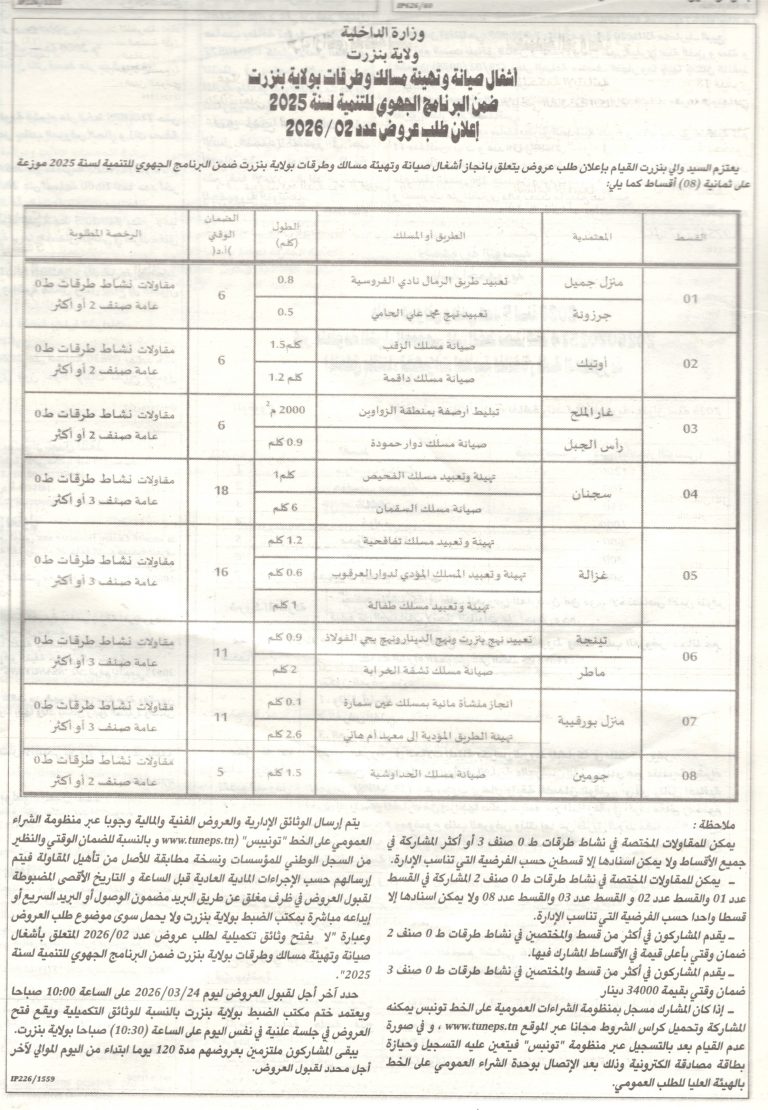 وزارة الداخلية
ولاية بنزرت
أشغال صيانة وتهيئة مسالك وطرقات بولاية بنزرت
ضمن البرنامج الجهوي للتنمية لسنة 2025
إعلان طلب عروض عدد 2026/02
يعتزم السيد والي بنزرت القيام بإعلان طلب عروض يتعلق بانجاز أشغال صيانة وتهيئة مسالك وطرقات بولاية بنزرت ضمن البرنامج الجهوي للتنمية لسنة 2025 موزعة
على ثمانية (08) أقساط كما يلي:
القسط المعتمدية الطريق أو المسلك الطول (كلم) الضمان الوقتي (أ.د) الرخصة المطلوبة
01 منزل جميل تعبيد طريق الرمال نادي الفروسية 0.8 6 مقاولات نشاط طرقات ط0 عامة صنف 2 أو أكثر
جرزونة تعبيد نهج محمد علي الحامي 0.5
02 أوتيك صيانة مسلك الزقب 1.5كلم 6 مقاولات نشاط طرقات ط0 عامة صنف 2 أو أكثر
صيانة مسلك داقمة 1.2 كلم
03 غار الملح تبليط أرصفة بمنطقة الزواوين 2000 م2 6 مقاولات نشاط طرقات ط0 عامة صنف 2 أو أكثر
رأس الجبل صيانة مسلك دوار حمودة 0.9 كلم
04 سجنان تهيئة وتعبيد مسلك الفحيص 1كلم 18 مقاولات نشاط طرقات ط0 عامة صنف 3 أو أكثر
صيانة مسلك السقمان 6 كلم
05 غزالة تهيئة وتعبيد مسلك تفاقحية 1.2 كلم 16 مقاولات نشاط طرقات ط0 عامة صنف 3 أو أكثر
تهيئة وتعبيد المسلك المؤدي لدوار العرقوب 0.6 كلم
تهيئة وتعبيد مسلك طفالة 1 كلم
06 تينجة تعبيد نهج بنزرت ونهج الدينارونهج بحي الفولاذ 0.9 كلم 11 مقاولات نشاط طرقات ط0 عامة صنف 3 أو أكثر
ماطر صيانة مسلك نشفة الخرابة 2 كلم
07 منزل بورقيبة انجاز منشأة مائية بمسلك عين سمارة 0.1 كلم 11 مقاولات نشاط طرقات ط0 عامة صنف 3 أو أكثر
تهيئة الطريق المؤدية إلى معهد أم هاني 2.6 كلم
08 جومين صيانة مسلك الحداوشية 1.5 كلم 5 مقاولات نشاط طرقات ط0 عامة صنف 2 أو أكثر
ملاحظة :
يمكن للمقاولات المختصة في نشاط طرقات ط 0 صنف 3 أو أكثر المشاركة في
جميع الأقساط ولا يمكن اسنادها إلا قسطين حسب الفرضية التي تناسب الإدارة.
ــ يمكن للمقاولات المختصة في نشاط طرقات ط 0 صنف 2 المشاركة في القسط
عدد 01 والقسط عدد 02 و القسط عدد 03 والقسط عدد 08 ولا يمكن اسنادها إلا
قسطا واحدا حسب الفرضية التي تناسب الإدارة.
ــ يقدم المشاركون في أكثر من قسط والمختصين في نشاط طرقات ط 0 صنف 2
ضمان وقتي بأعلى قيمة في الأقساط المشارك فيها.
ــ يقدم المشاركون في أكثر من قسط والمختصين في نشاط طرقات ط 0 صنف 3
ضمان وقتي بقيمة 34000 دينار
ــ إذا كان المشارك مسجل بمنظومة الشراءات العمومية على الخط تونبس يمكنه
المشاركة وتحميل كراس الشروط مجانا عبر الموقع www.tuneps.tn ، و في صورة
عدم القيام بعد بالتسجيل عبر منظومة "تونبس" فيتعين عليه التسجيل وحيازة
بطاقة مصادقة الكترونية وذلك بعد الإتصال بوحدة الشراء العمومي على الخط
بالهيئة العليا للطلب العمومي.
يتم إرسال الوثائق الإدارية والعروض الفنية والمالية وجوبا عبر منظومة الشراء
العمومي على الخط "تونيبس" (www.tuneps.tn) و بالنسبة للضمان الوقتي والنظير
من السجل الوطني للمؤسسات ونسخة مطابقة للأصل من تأهيل المقاولة فيتم
إرسالهم حسب الإجراءات المادية العادية قبل الساعة و التاريخ الأقصى المضبوطة
لقبول العروض في ظرف مغلق عن طريق البريد مضمون الوصول أو البريد السريع أو
إيداعه مباشرة بمكتب الضبط بولاية بنزرت ولا يحمل سوى موضوع طلب العروض
وعبارة "لا يفتح وثائق تكميلية لطلب عروض عدد 2026/02 المتعلق بأشغال
صيانة وتهيئة مسالك وطرقات بولاية بنزرت ضمن البرنامج الجهوي للتنمية لسنة
2025".
حدد آخر أجل لقبول العروض ليوم 2026/03/24 على الساعة 10:00 صباحا
ويعتمد ختم مكتب الضبط بولاية بنزرت بالنسبة للوثائق التكميلية ويقع فتح
العروض في جلسة علنية في نفس اليوم على الساعة (10:30) صباحا بولاية بنزرت.
يبقى المشاركون ملتزمين بعروضهم مدة 120 يوما ابتداء من اليوم الموالي لآخر
أجل محدد لقبول العروض.
IP226/1559